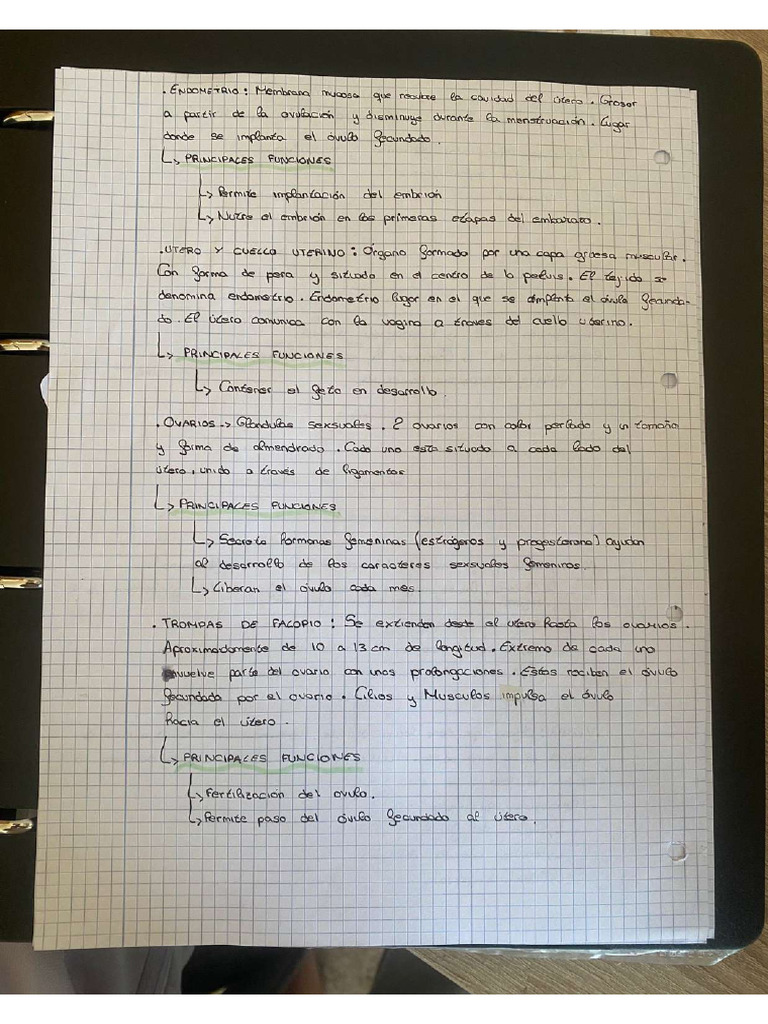 . ENDOMETRIO : Membrana mucosa que recubre la cavidad del útero . Grosor
a partir de la ovulación y disminuye durante la menstruación . Lugar
donde se implanta el óvulo fecundado .
↳ PRINCIPALES FUNCIONES
↳ Permite implantación del embrión
↳ Nutre el embrión en las primeras etapas del embarazo .
. UTERO Y CUELLO UTERINO : Órgano formado por una capa gruesa muscular .
Con forma de pera y situado en el centro de la pelvis . El tejido se
denomina endometrio . Endometrio lugar en el que se implanta el óvulo fecunda-
do . El útero comunica con la vagina a traves del cuello uterino .
↳ PRINCIPALES FUNCIONES
↳ Contener el feto en desarrollo .
. OVARIOS -> Glandulas sexsuales . 2 ovarios con color perlado y un tamaño
y forma de almendrado . Cada uno esta situado a cada lado del
útero , unido a través de ligamentos
↳ PRINCIPALES FUNCIONES
↳ Secreta hormonas femeninas (estrógenos y progesterona) ayudan
al desarrollo de los caracteres sexsuales femeninos .
↳ Liberan el óvulo cada mes .
. TROMPAS DE FALOPIO : Se extienden desde el útero hasta los ovarios .
Aproximadamente de 10 a 13 cm de longitud . Extremo de cada uno
envuelve parte del ovario con unas prolongaciones . Estas reciben el óvulo
fecundado por el ovario . Cilios y Musculos impulsa el óvulo
hacia el útero .
↳ PRINCIPALES FUNCIONES
↳ Fertilización del ovulo .
↳ Permite paso del óvulo fecundado al útero .